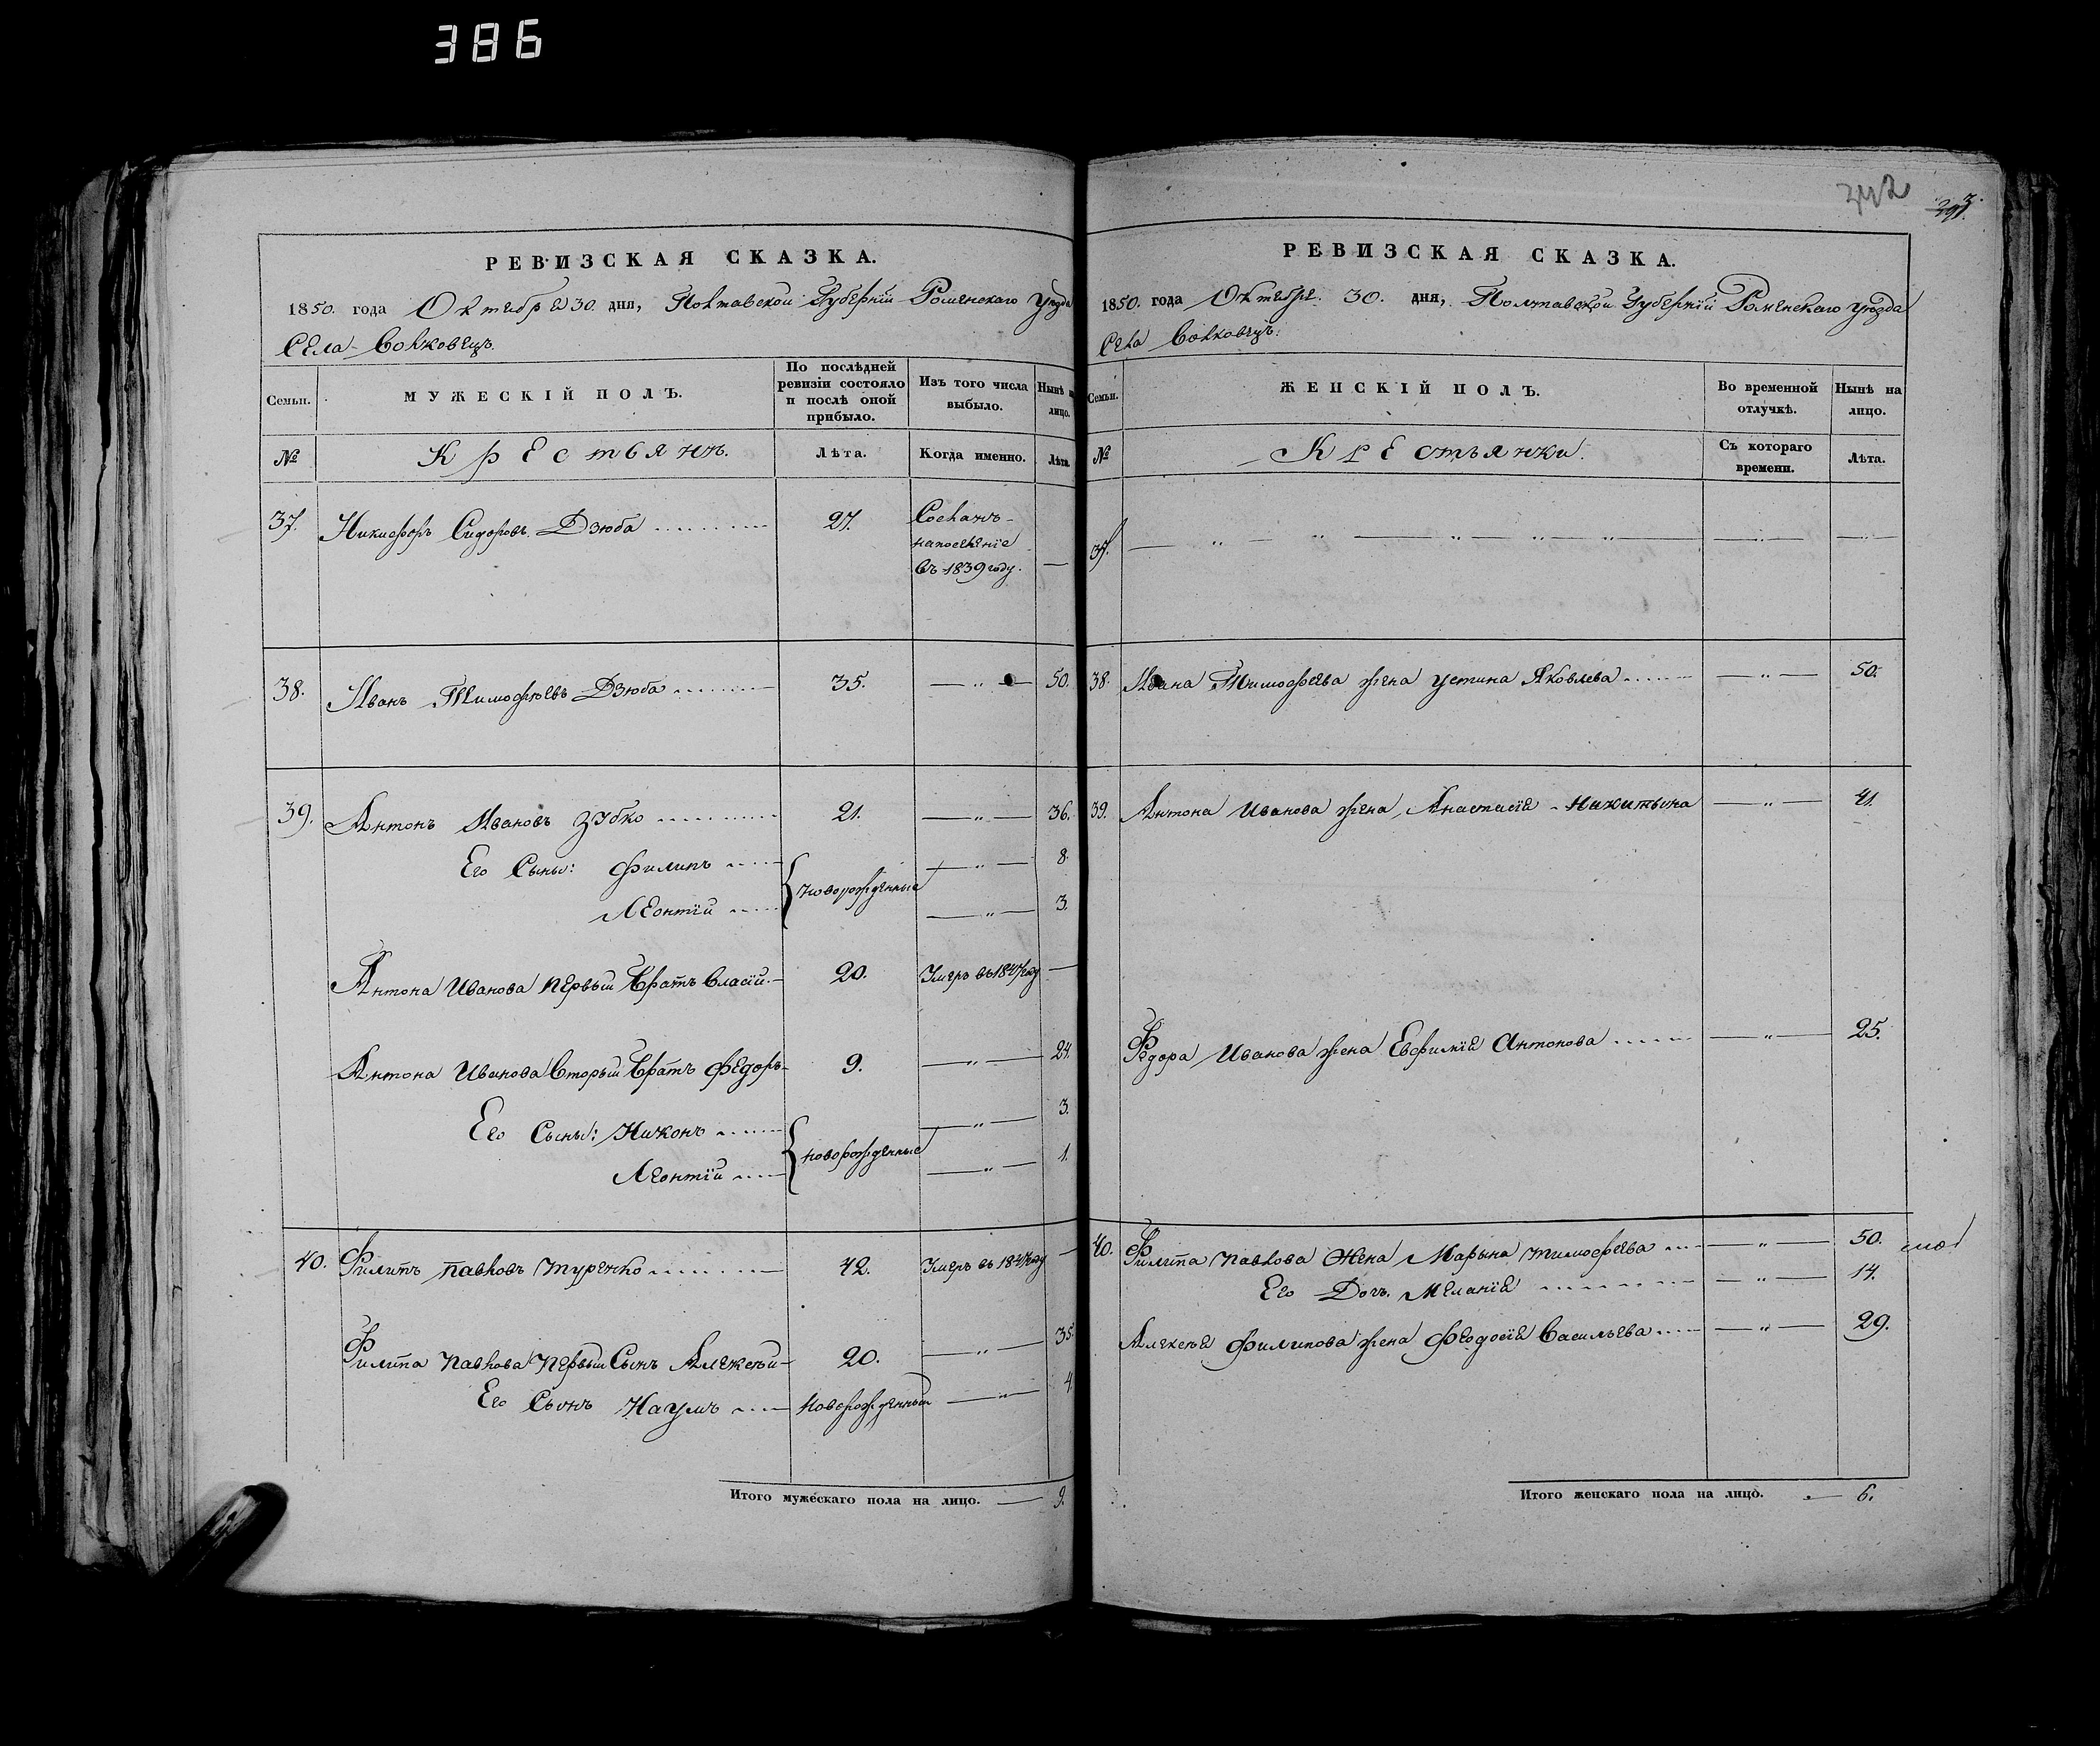 386
342
РЕВИЗСКАЯ СКАЗКА.
1850. года Октебре 30. дня, Полтавской Губернiи Роменскаго Уезда
Села Волковецъ.
Семьи.
МУЖЕСКІЙ ПОЛЪ.
По послѣдней ревизіи состояло и послѣ оной прибыло.
Изъ того числа выбыло.
Нынѣ на лицо.
№
Крестьянъ.
Лѣта.
Когда именно.
Лѣта.
37. Никифоръ Сидоровъ Дзюба 27. Сосланъ
на поселенiе
въ 1839 году. —
38. Иванъ Тимофѣевъ Дзюба 35. — „ — 50.
39. Антонъ Ивановъ Зубко 21. — „ — 36.
Его Сыны: Филипъ — „ — 8.
новорожденные
Леонтiй — „ — 3.
Антона Иванова первый братъ Власiй. 20. Умеръ въ 1847 году —
Антона Иванова Вторый братъ Федоръ 9. — „ — 24.
Его Сыны: Никонъ — „ — 3.
новорожденные
Леонтiй — „ — 1.
40. Филипъ Павловъ Туренко 42. Умеръ въ 1847 году —
Филипа Павлова первый Сынъ Алексей 20. — „ — 35.
Его Сынъ Наумъ новорожденный — „ — 4.
Итого мужескаго пола на лицо. — 9.
РЕВИЗСКАЯ СКАЗКА.
1850. года Октебре. 30. дня, Полтавской Губернiй Роменскаго уезда
Села Волковецъ.
Семьи.
ЖЕНСКІЙ ПОЛЪ.
Во временной отлучкѣ.
Нынѣ на лицо.
№
Крестьянки.
Съ котораго времени.
Лѣта.
37. — „ — „ — „ — „ — „ — — „ — — „ —
38. Ивана Тимофеева жена Устина Яковлева — „ — 50.
39. Антона Иванова жена, Анастасiя Никитьвна — „ — 41.
Федора Иванова жена Евфимiя Антонова — „ — 25.
40. Филипа Павлова Жена Марына Тимофеева — „ — 50.
Его Доч. Меланiя — „ — 14.
Алексея Филипова жена Феодосiя Васильева — „ — 29.
Итого женскаго пола на лицо. — 6.